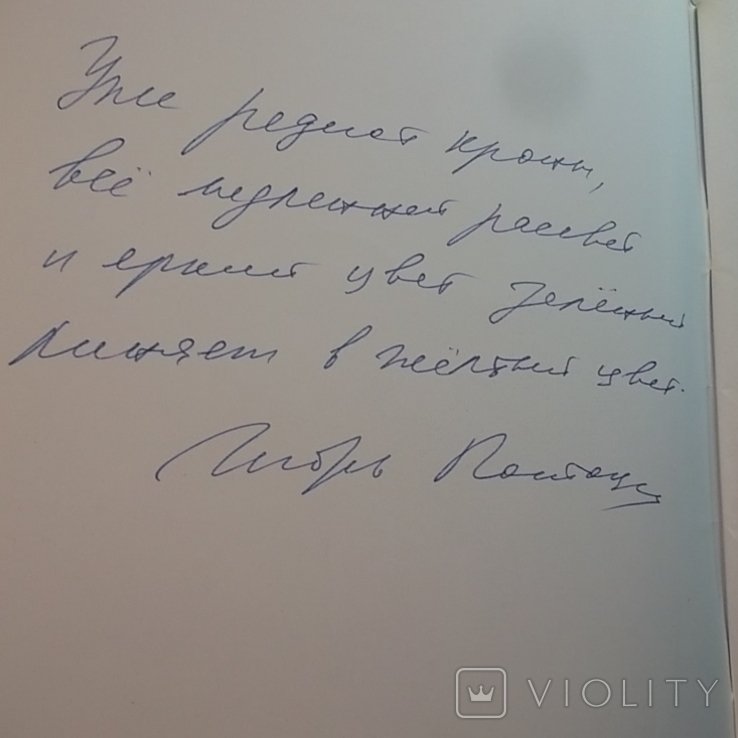 Уже редеют кроны,
всё медленней рассвет
и яркий цвет зелёный
линяет в жёлтый цвет.
Игорь
VIOLITY